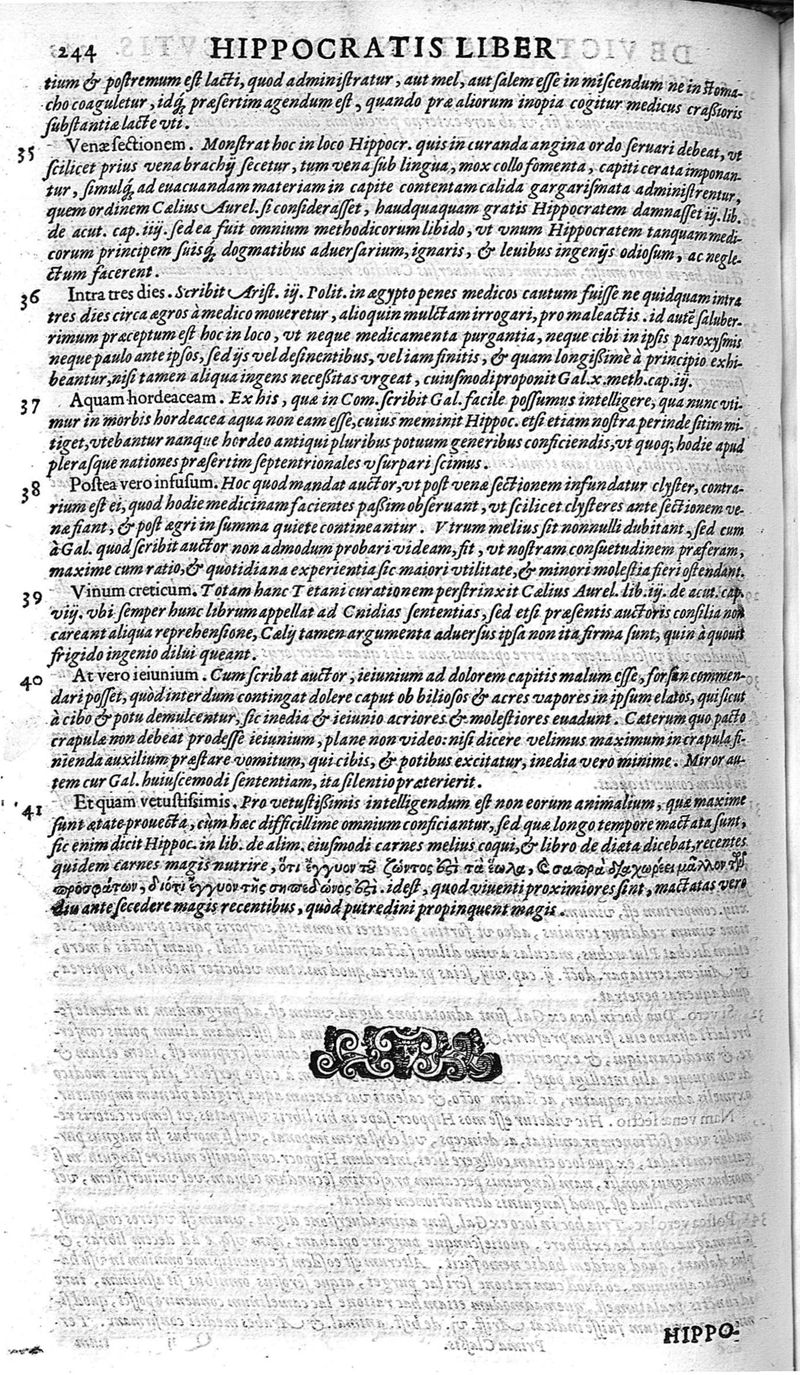 244 HIPPOCRATIS LIBER
tium & postremum est lacti, quod administratur, aut mel, aut salem esse in miscendum ne in stoma-
cho coaguletur, idq́; præsertim agendum est, quando præ aliorum inopia cogitur medicus crassioris
substantiæ lacte vti.
35 Venæ sectionem. Monstrat hoc in loco Hippocr. quis in curanda angina ordo seruari debeat, vt
scilicet prius vena brachij secetur, tum vena sub lingua, mox collo fomenta, capiti cerata imponan-
tur, simulq́; ad euacuandam materiam in capite contentam calida gargarismata administrentur,
quem ordinem Cælius Aurel. si considerasset, haudquaquam gratis Hippocratem damnasset iij. lib.
de acut. cap. iiij. sed ea fuit omnium methodicorum libido, vt vnum Hippocratem tanquam medi-
corum principem suisq́; dogmatibus aduersarium, ignaris, & leuibus ingenijs odiosum, ac negle-
ctum facerent.
36 Intra tres dies. Scribit Arist. iij. Polit. in ægypto penes medicos cautum fuisse ne quidquam intra
tres dies circa ægros à medico moueretur, alioquin mulctam irrogari, pro male actis. id autẽ saluber-
rimum præceptum est hoc in loco, vt neque medicamenta purgantia, neque cibi in ipsis paroxysmis
neque paulo ante ipsos, sed ijs vel desinentibus, vel iam finitis, & quam longissime à principio exhi-
beantur, nisi tamen aliqua ingens necessitas vrgeat, cuiusmodi proponit Gal. x. meth. cap. ij.
37 Aquam hordeaceam. Ex his, quæ in Com. scribit Gal. facile possumus intelligere, qua nunc vti-
mur in morbis hordeacea aqua non eam esse, cuius meminit Hippoc. etsi etiam nostra perinde sitim mi-
tiget, vtebantur nanque hordeo antiqui pluribus potuum generibus conficiendis, vt quoq; hodie apud
plerasque nationes præsertim septentrionales vsurpari scimus.
38 Postea vero infusum. Hoc quod mandat auctor, vt post venæ sectionem infundatur clyster, contra-
rium est ei, quod hodie medicinam facientes passim obseruant, vt scilicet clysteres ante sectionem ve-
næ fiant, & post ægri in summa quiete contineantur. Vtrum melius sit nonnulli dubitant, sed cum
à Gal. quod scribit auctor non admodum probari videam, fit, vt nostram consuetudinem præferam,
maxime cum ratio, & quotidiana experientia sic maiori vtilitate, & minori molestia fieri ostendant.
39 Vinum creticum. Totam hanc Tetani curationem perstrinxit Cælius Aurel. lib. iij. de acut. cap.
viij. vbi semper hunc librum appellat ad Cnidias sententias, sed etsi præsentis auctoris consilia non
careant aliqua reprehensione, Cælij tamen argumenta aduersus ipsa non ita firma sunt, quin à quouis
frigido ingenio dilui queant.
40 At vero ieiunium. Cum scribat auctor, ieiunium ad dolorem capitis malum esse, forsan commen-
dari posset, quòd interdum contingat dolere caput ob biliosos & acres vapores in ipsum elatos, qui sicut
à cibo & potu demulcentur, sic inedia & ieiunio acriores & molestiores euadunt. Cæterum quo pacto
crapulæ non debeat prodesse ieiunium, plane non video: nisi dicere velimus maximum in crapula fi-
nienda auxilium præstare vomitum, qui cibis, & potibus excitatur, inedia vero minime. Miror au-
tem cur Gal. huiuscemodi sententiam, ita silentio præterierit.
41 Et quam vetustissimis. Pro vetustissimis intelligendum est non eorum animalium, quæ maxime
sunt ætate prouecta, cùm hæc difficillime omnium conficiantur, sed quæ longo tempore mactata sunt,
sic enim dicit Hippoc. in lib. de alim. eiusmodi carnes melius coqui, & libro de diæta dicebat, recentes
quidem carnes magis nutrire, ὅτι ἔγγυον τοῦ ζῶντος ἐστὶ τὰ ἕωλα, & σαπρὰ διαχωρέει μᾶλλον τῶν
προσφάτων, διότι ἔγγυον τῆς σηπεδῶνος ἐστί. idest, quod viuenti proximiores sint, mactatas vero
diu ante secedere magis recentibus, quòd putredini propinquent magis.
HIPPO-